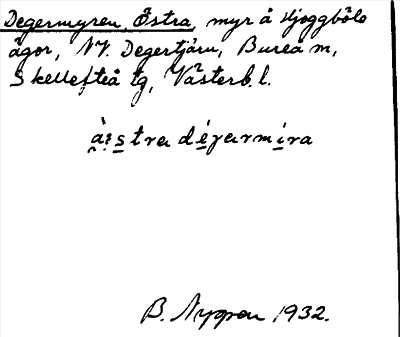 Degermyren, Östra, myr å Sjoggböle
ägor, NV. Degertjärn, Bureå m,
Skellefteå tg, Västerb. l.
B. Nygren 1932.